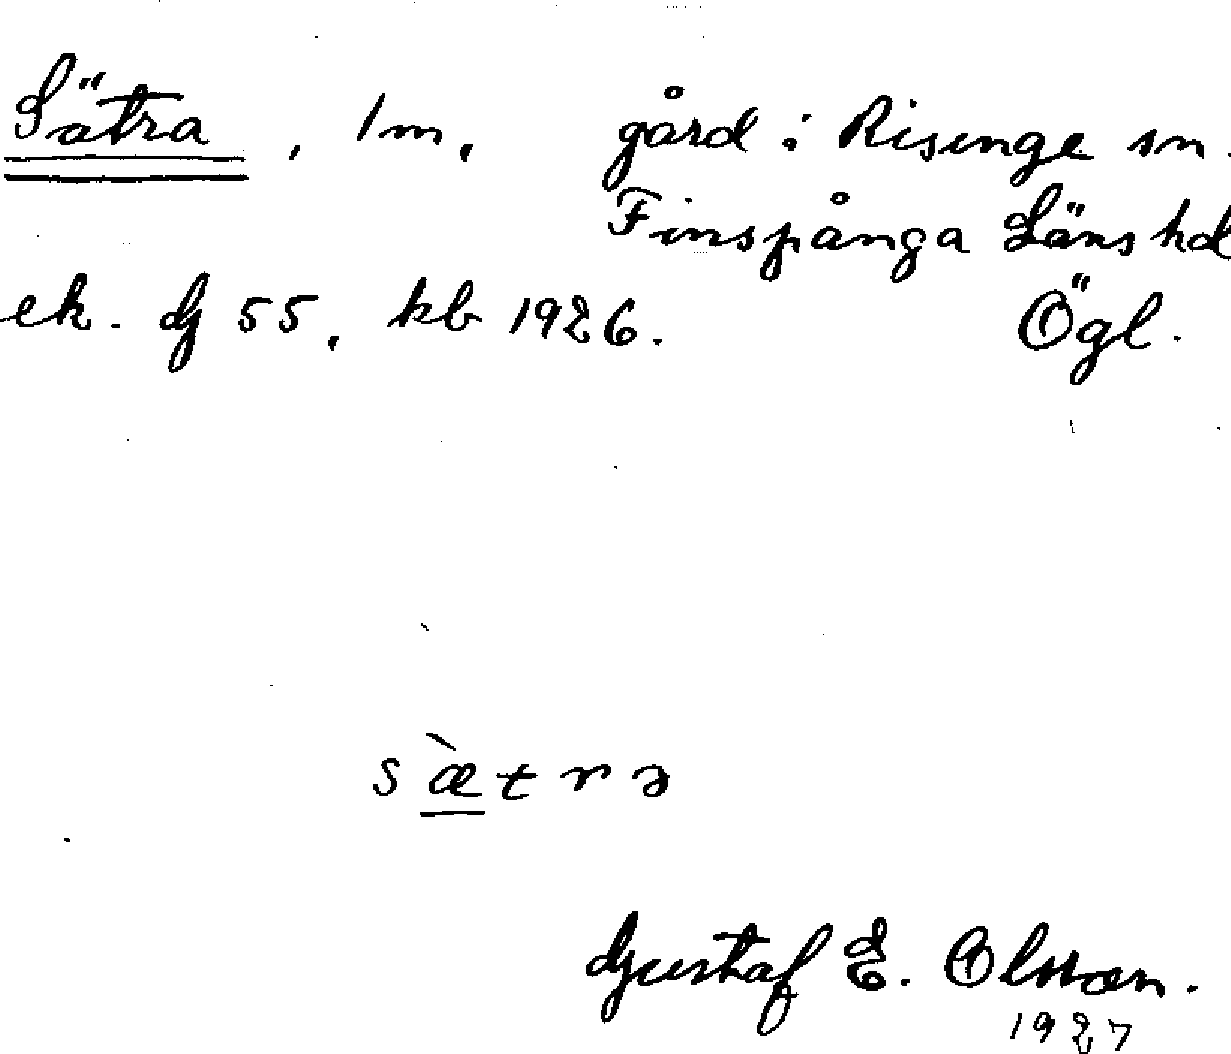 Sätra, 1 m. gård i Risinge sn.
Finspånga Läns hd
ek. dj 55. kb 1926. Ögl.
sæ̀trə
Gustaf E. Olsson.
1927